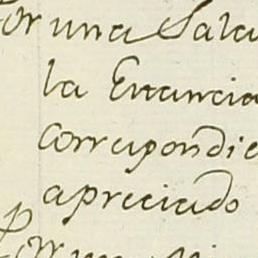 or una Sala
la Enancia
correspondie
apreciado
Por un